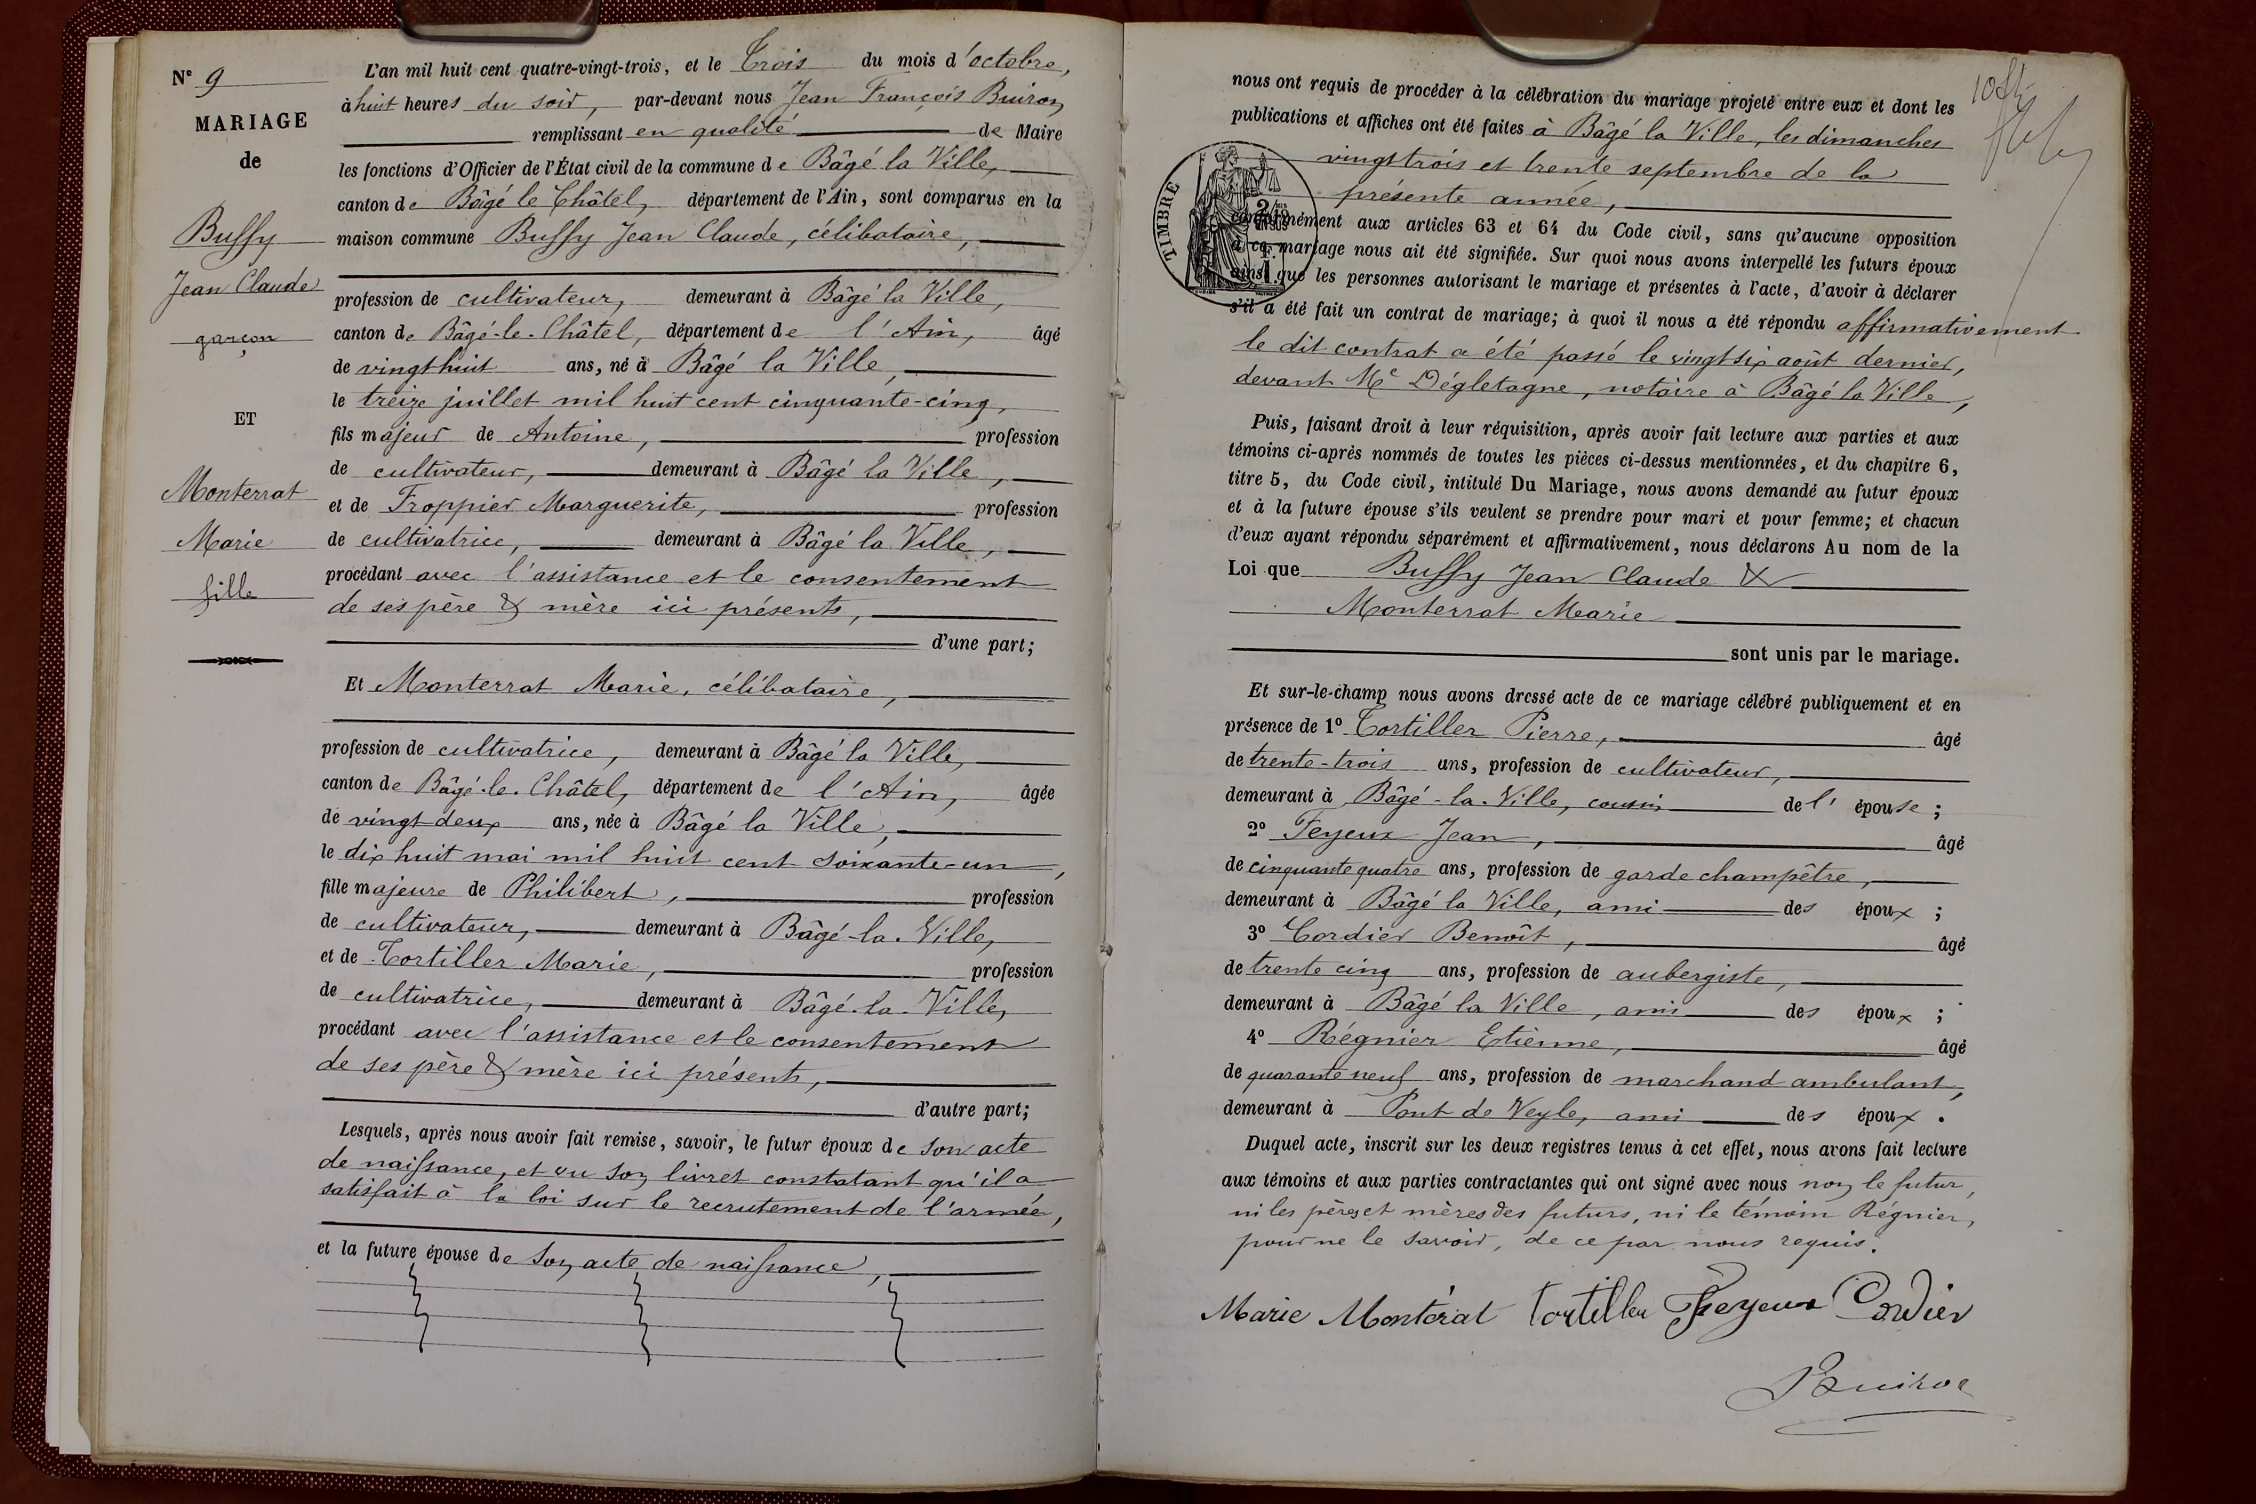 N° 9
MARIAGE
de
Buffy
Jean Claude
garçon
ET
Monterrat
Marie
fille
L'an mil huit cent quatre-vingt-trois, et le Trois du mois d'octobre,
à huit heures du soir, par-devant nous Jean François Buiron,
remplissant en qualité de Maire
les fonctions d'Officier de l'État civil de la commune de Bâgé la Ville,
canton de Bâgé le Châtel, département de l'Ain, sont comparus en la
maison commune Buffy Jean Claude, célibataire,
profession de cultivateur, demeurant à Bâgé la Ville,
canton de Bâgé-le-Châtel, département de l'Ain, âgé
de vingt huit ans, né à Bâgé la Ville,
le treize juillet mil huit cent cinquante-cinq,
fils majeur de Antoine, profession
de cultivateur, demeurant à Bâgé la Ville,
et de Froppier Marguerite, profession
de cultivatrice, demeurant à Bâgé la Ville,
procédant avec l'assistance et le consentement
de ses père & mère ici présents,
d'une part;
Et Monterrat Marie, célibataire,
profession de cultivatrice, demeurant à Bâgé la Ville,
canton de Bâgé-le-Châtel, département de l'Ain, âgée
de vingt deux ans, née à Bâgé la Ville,
le dix huit mai mil huit cent soixante-un,
fille majeure de Philibert, profession
de cultivateur, demeurant à Bâgé-la-Ville,
et de Tortiller Marie, profession
de cultivatrice, demeurant à Bâgé-la-Ville,
procédant avec l'assistance et le consentement
de ses père & mère ici présents,
d'autre part;
Lesquels, après nous avoir fait remise, savoir, le futur époux de son acte
de naissance, et vu son livret constatant qu'il a
satisfait à la loi sur le recrutement de l'armée,
et la future épouse de son acte de naissance,
nous ont requis de procéder à la célébration du mariage projeté entre eux et dont les
publications et affiches ont été faites à Bâgé la Ville, les dimanches
vingt trois et trente septembre de la
présente année,
TIMBRE
conformément aux articles 63 et 64 du Code civil, sans qu'aucune opposition
à ce mariage nous ait été signifiée. Sur quoi nous avons interpellé les futurs époux
ainsi que les personnes autorisant le mariage et présentes à l'acte, d'avoir à déclarer
s'il a été fait un contrat de mariage; à quoi il nous a été répondu affirmativement
le dit contrat a été passé le vingt six août dernier,
devant Me Dégletagne, notaire à Bâgé la Ville,
Puis, faisant droit à leur réquisition, après avoir fait lecture aux parties et aux
témoins ci-après nommés de toutes les pièces ci-dessus mentionnées, et du chapitre 6,
titre 5, du Code civil, intitulé Du Mariage, nous avons demandé au futur époux
et à la future épouse s'ils veulent se prendre pour mari et pour femme; et chacun
d'eux ayant répondu séparément et affirmativement, nous déclarons Au nom de la
Loi que Buffy Jean Claude &
Monterrat Marie
sont unis par le mariage.
Et sur-le-champ nous avons dressé acte de ce mariage célébré publiquement et en
présence de 1° Tortiller Pierre, âgé
de trente-trois ans, profession de cultivateur,
demeurant à Bâgé-la-Ville, cousin de l'épouse;
2° Feyeux Jean, âgé
de cinquante quatre ans, profession de garde champêtre,
demeurant à Bâgé la Ville, ami des époux;
3° Cordier Benoît, âgé
de trente cinq ans, profession de aubergiste,
demeurant à Bâgé la Ville, ami des époux;
4° Régnier Etienne, âgé
de quarante neuf ans, profession de marchand ambulant,
demeurant à Pont de Veyle, ami des époux.
Duquel acte, inscrit sur les deux registres tenus à cet effet, nous avons fait lecture
aux témoins et aux parties contractantes qui ont signé avec nous non le futur,
ni les pères et mères des futurs, ni le témoin Régnier,
pour ne le savoir, de ce par nous requis.
Marie Monterat Tortiller Feyeux Cordier
Buiron